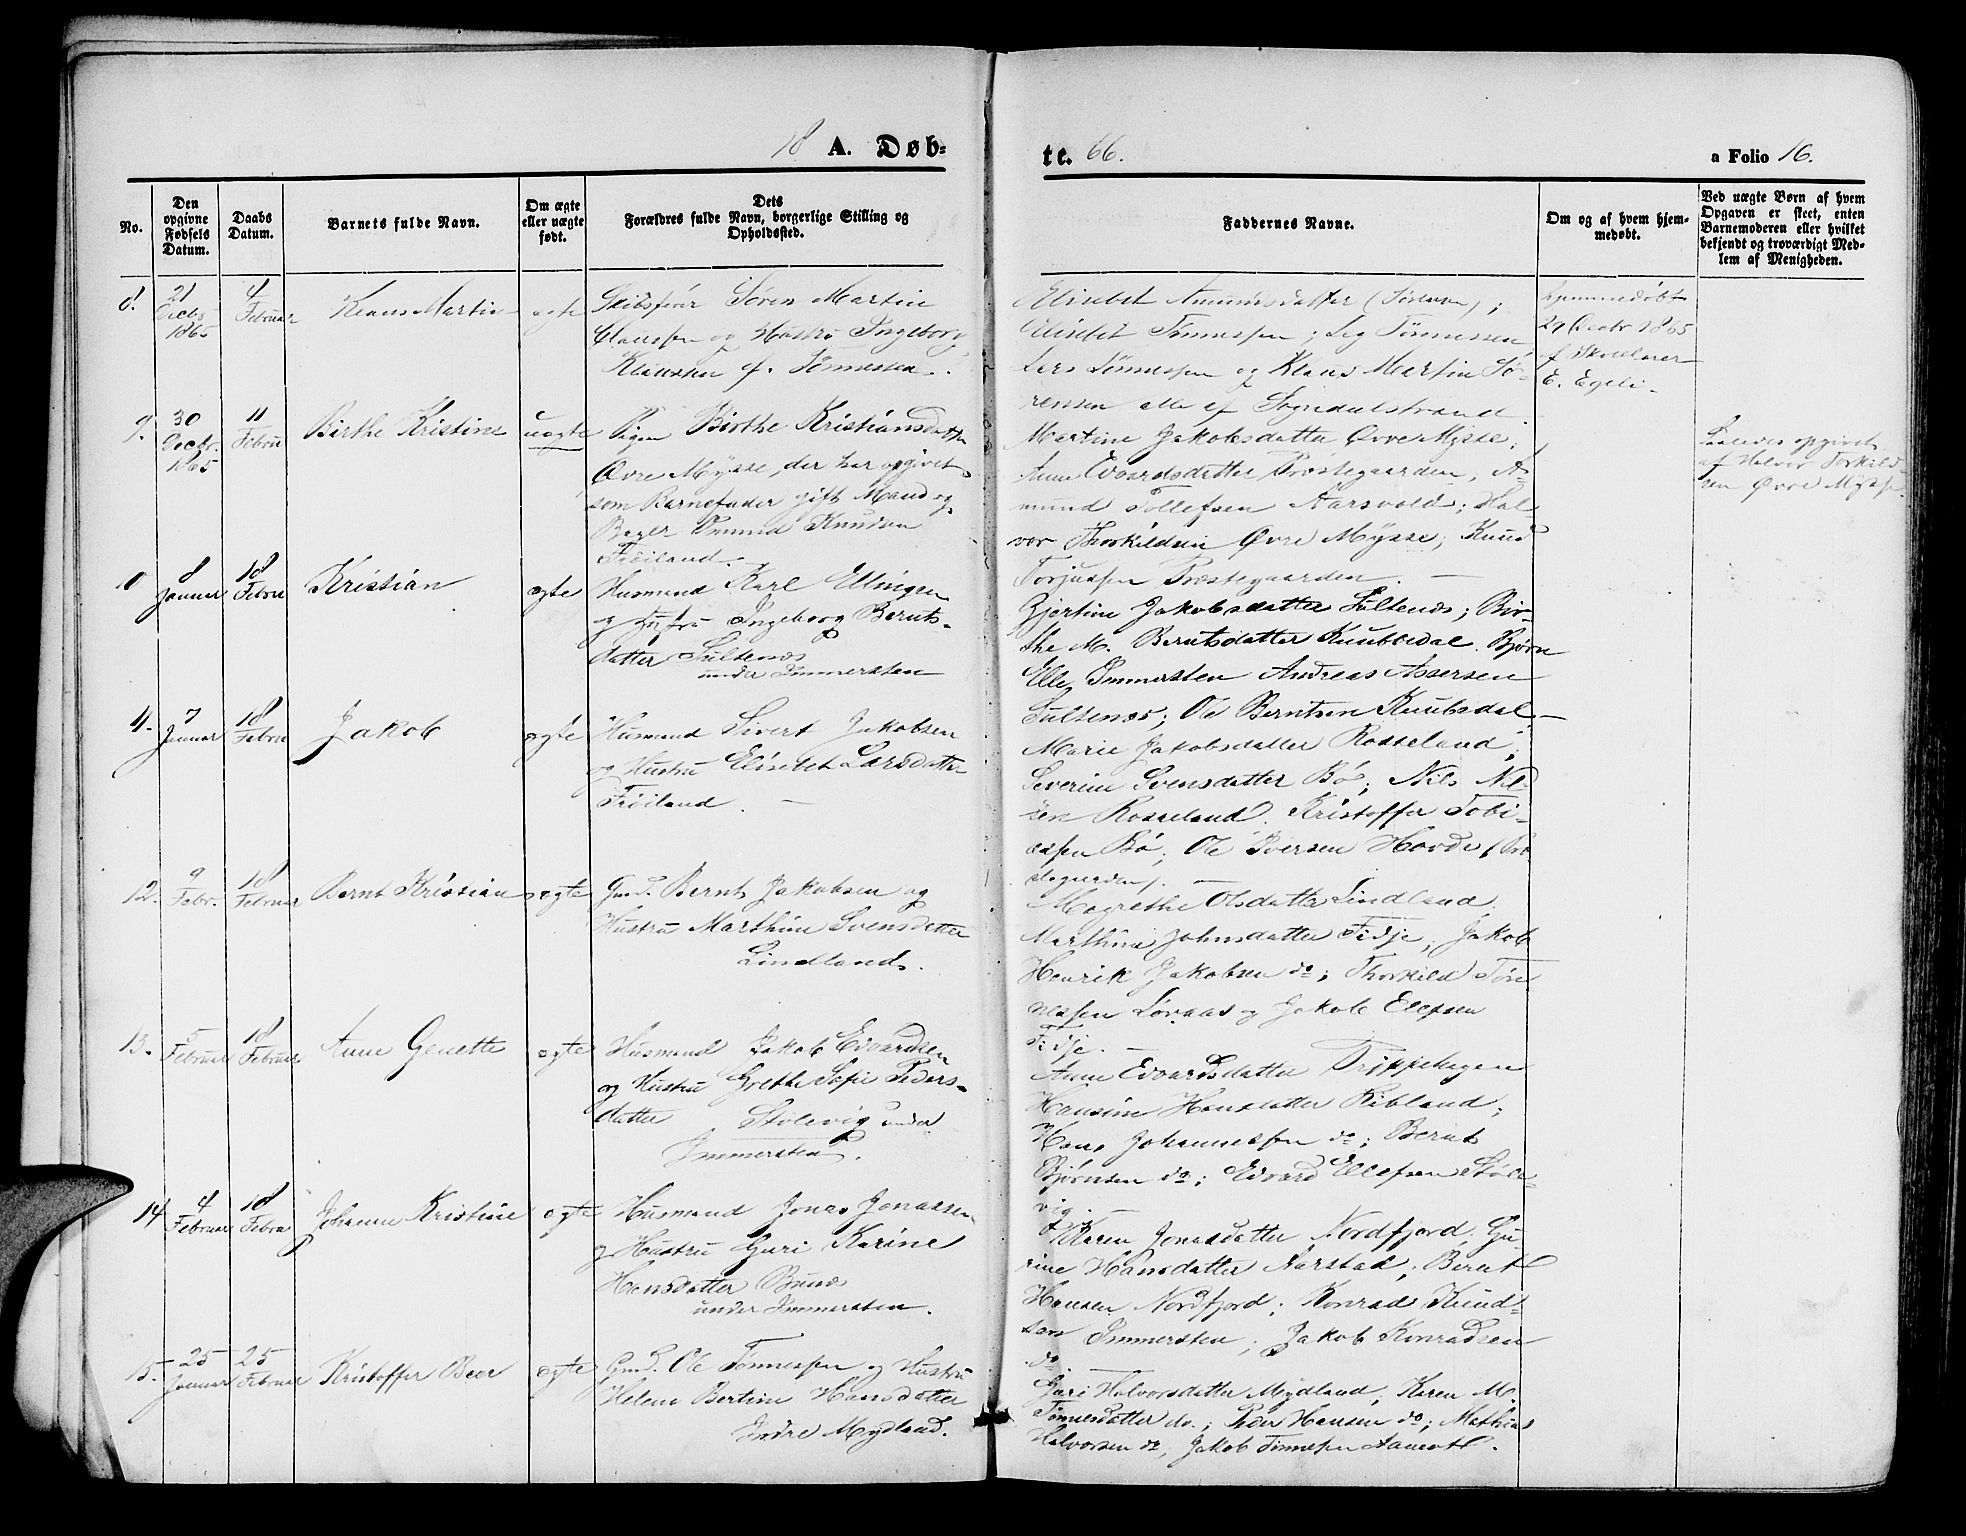 18 A. Døb-
te. 66.
a Folio 16.
No.
Den opgivne Fødsels Datum.
Daabs Datum.
Barnets fulde Navn.
Om ægte eller uægte født.
Dets Forældres fulde Navn, borgerlige Stilling og Opholdssted.
Faddernes Navne.
Om og af hvem hjem-
medøbt.
Ved uægte Børn af hvem
Opgaven er skeet, enten
Barnemoderen eller hvilket
bekjendt og troværdigt Med-
lem af Menigheden.
8.
21 Decbr 1865
4 Februar
Klaus Martin
ægte
Skibsfører Søren Martin
Claussen og Hustru Ingeborg
Klausdtr f. Tønnessen.
Elisebet Amundsdatter (Sørensen);
Elisebet Tønnessen; Leg Tønnessen
Lars Tønnessen og Klaus Martin Sø-
rensen alle af Sogndalstrand
hjemmedøbt
29 Decbr 1865
af Skolelærer
E. Egeli.
9.
30 Decbr. 1865
11 Febru
Birthe Kristine
uægte
Pigen Birthe Kristiansdatter
Øvre Mysse, der har opgivet
som Barnefader gift Mand og
Bager Ommund Knudsen
Frøiland.
Martine Jakobsdatter Øvre Mysse;
Anne Edvardsdatter Præstegaarden; A-
mund Tollefsen Aarsvold; Hal-
vor Thorkildsen Øvre Mysse; Knud
Torjussen Præstegaarden.
Saaledes opgivet
af Halvor Torkild-
sen Øvre Mysse.
10
8 Januar
18 Februar
Kristian
ægte
Husmand Karl Ellingsen
og Hustru Ingeborg Bernts-
datter Sultenæs
under Immerstein
Gjertine Jakobsdatter Sultenæs; Bir-
the M. Berntsdatter Knubedal. Bjørn
Elle Immerstein Andreas Assersen
Sultenæs; Ole Berntsen Knubedal.
11.
7 Januar
18 Febru
Jakob
ægte
Husmand Sivert Jakobsen
og Hustru Elisebet Larsdatter
Frøiland.
Marie Jakobsdatter Rosseland;
Severine Svensdatter Bø; Nils Nil-
sen Rosseland. Kristoffer Tobi-
assen Bø; Ole Iversen Hovde (Præ-
stegaarden).
12.
9 Febr.
18 Februar
Bernt Kristian
ægte
Gmd. Bernt Jakobsen og
Hustru Marthine Svensdatter
Lindland.
Magrethe Olsdatter Lindland;
Marthine Johnsdatter Fidje; Jakob
Henrik Jakobsen do; Thorkild Tøn-
nessen Løvaas og Jakob Ellefsen
Fidje.
13.
5 Februar
18 Februar
Anne Genette
ægte
Husmand Jakob Edvardsen
og Hustru Grethe Sofie Peders-
datter Stølevig under
Immerstein.
Anne Edvardsdatter Trippehagen
Hansine Hansdatter Ribland;
Hans Johannessen do; Bernt
Bjørnsen do; Edvard Ellefsen Støle-
vig.
14
4 Februar
18 Februar
Johanne Kristine
ægte
Husmand Jonas Jonassen
og Hustru Guri Karine
Hansdatter Bunes
under Immerstein.
Karen Jonasdatter Nordfjord; Gu-
rine Hansdatter Aarstad; Bernt
Hansen Nordfjord; Konrad Knud-
sen Immerstein; Jakob Konradsen
do.
15.
25 Januar
25 Februar
Kristoffer Beer
ægte
Gmd. Ole Tønnessen og Hustru
Helene Bertine Hansdatter
Indre Mydland.
Guri Halvorsdatter Mydland; Karen M.
Tønnesdatter do.; Peder Hansen do; Mathias
Halvorsen do, Jakob Tønnessen Aamodt.